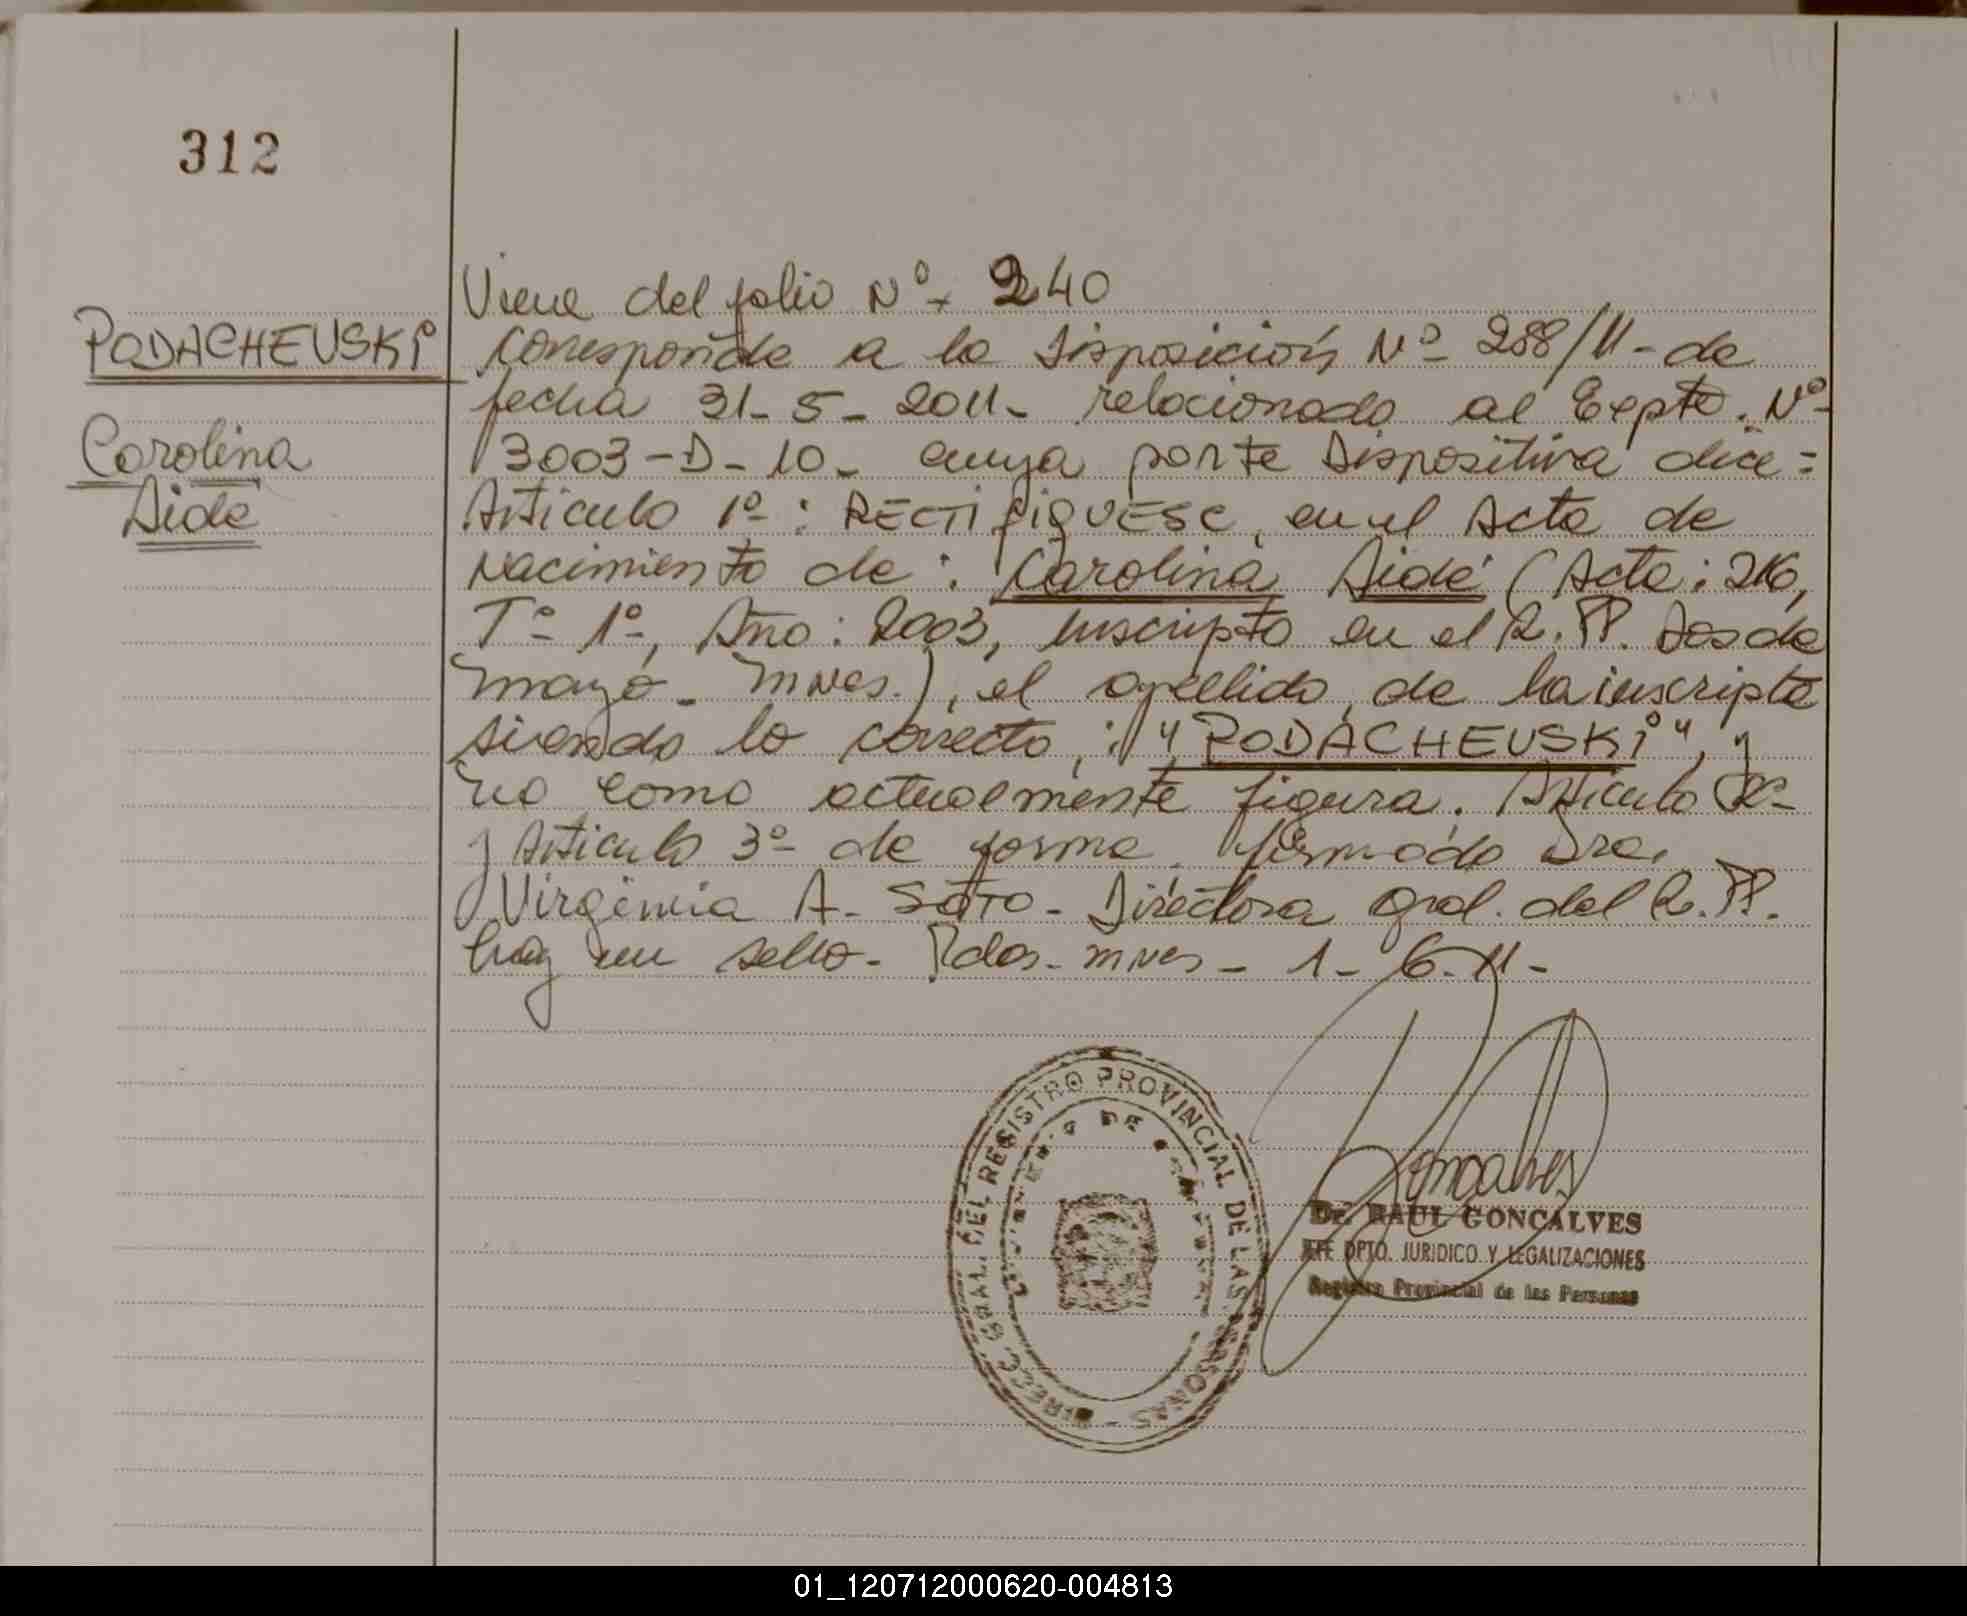 312
Viene del folio Nº 240
PODACHEVSKi
Corresponde a la Disposición Nº 288/11- de
fecha 31-5-2011- relacionado al Expte. Nº
Carolina
3003-D-10- cuya parte Dispositiva dice=
Aidé
Articulo 1º: RECTIFIQUESE, en el Acta de
Nacimiento de: Carolina Aidé (Acta: 216,
Tº 1º, Año: 2003, inscripto en el R.PP. Dos de
mayo- Mnes.), el apellido de la inscripta
siendo lo correcto: "PODACHEVSKi", y
no como actualmente figura. Articulo 2º
y Articulo 3º de forma. firmado Dra.
Virginia A. Soto- Directora Gral. del R.PP.
hay un sello- Pdas- mnes- 1-6-11-
DIRECC. GRAL. DEL REGISTRO PROVINCIAL DE LAS PERSONAS
Goncalves
Dr. RAUL GONCALVES
JEFE DPTO. JURIDICO Y LEGALIZACIONES
Registro Provincial de las Personas
01_120712000620-004813